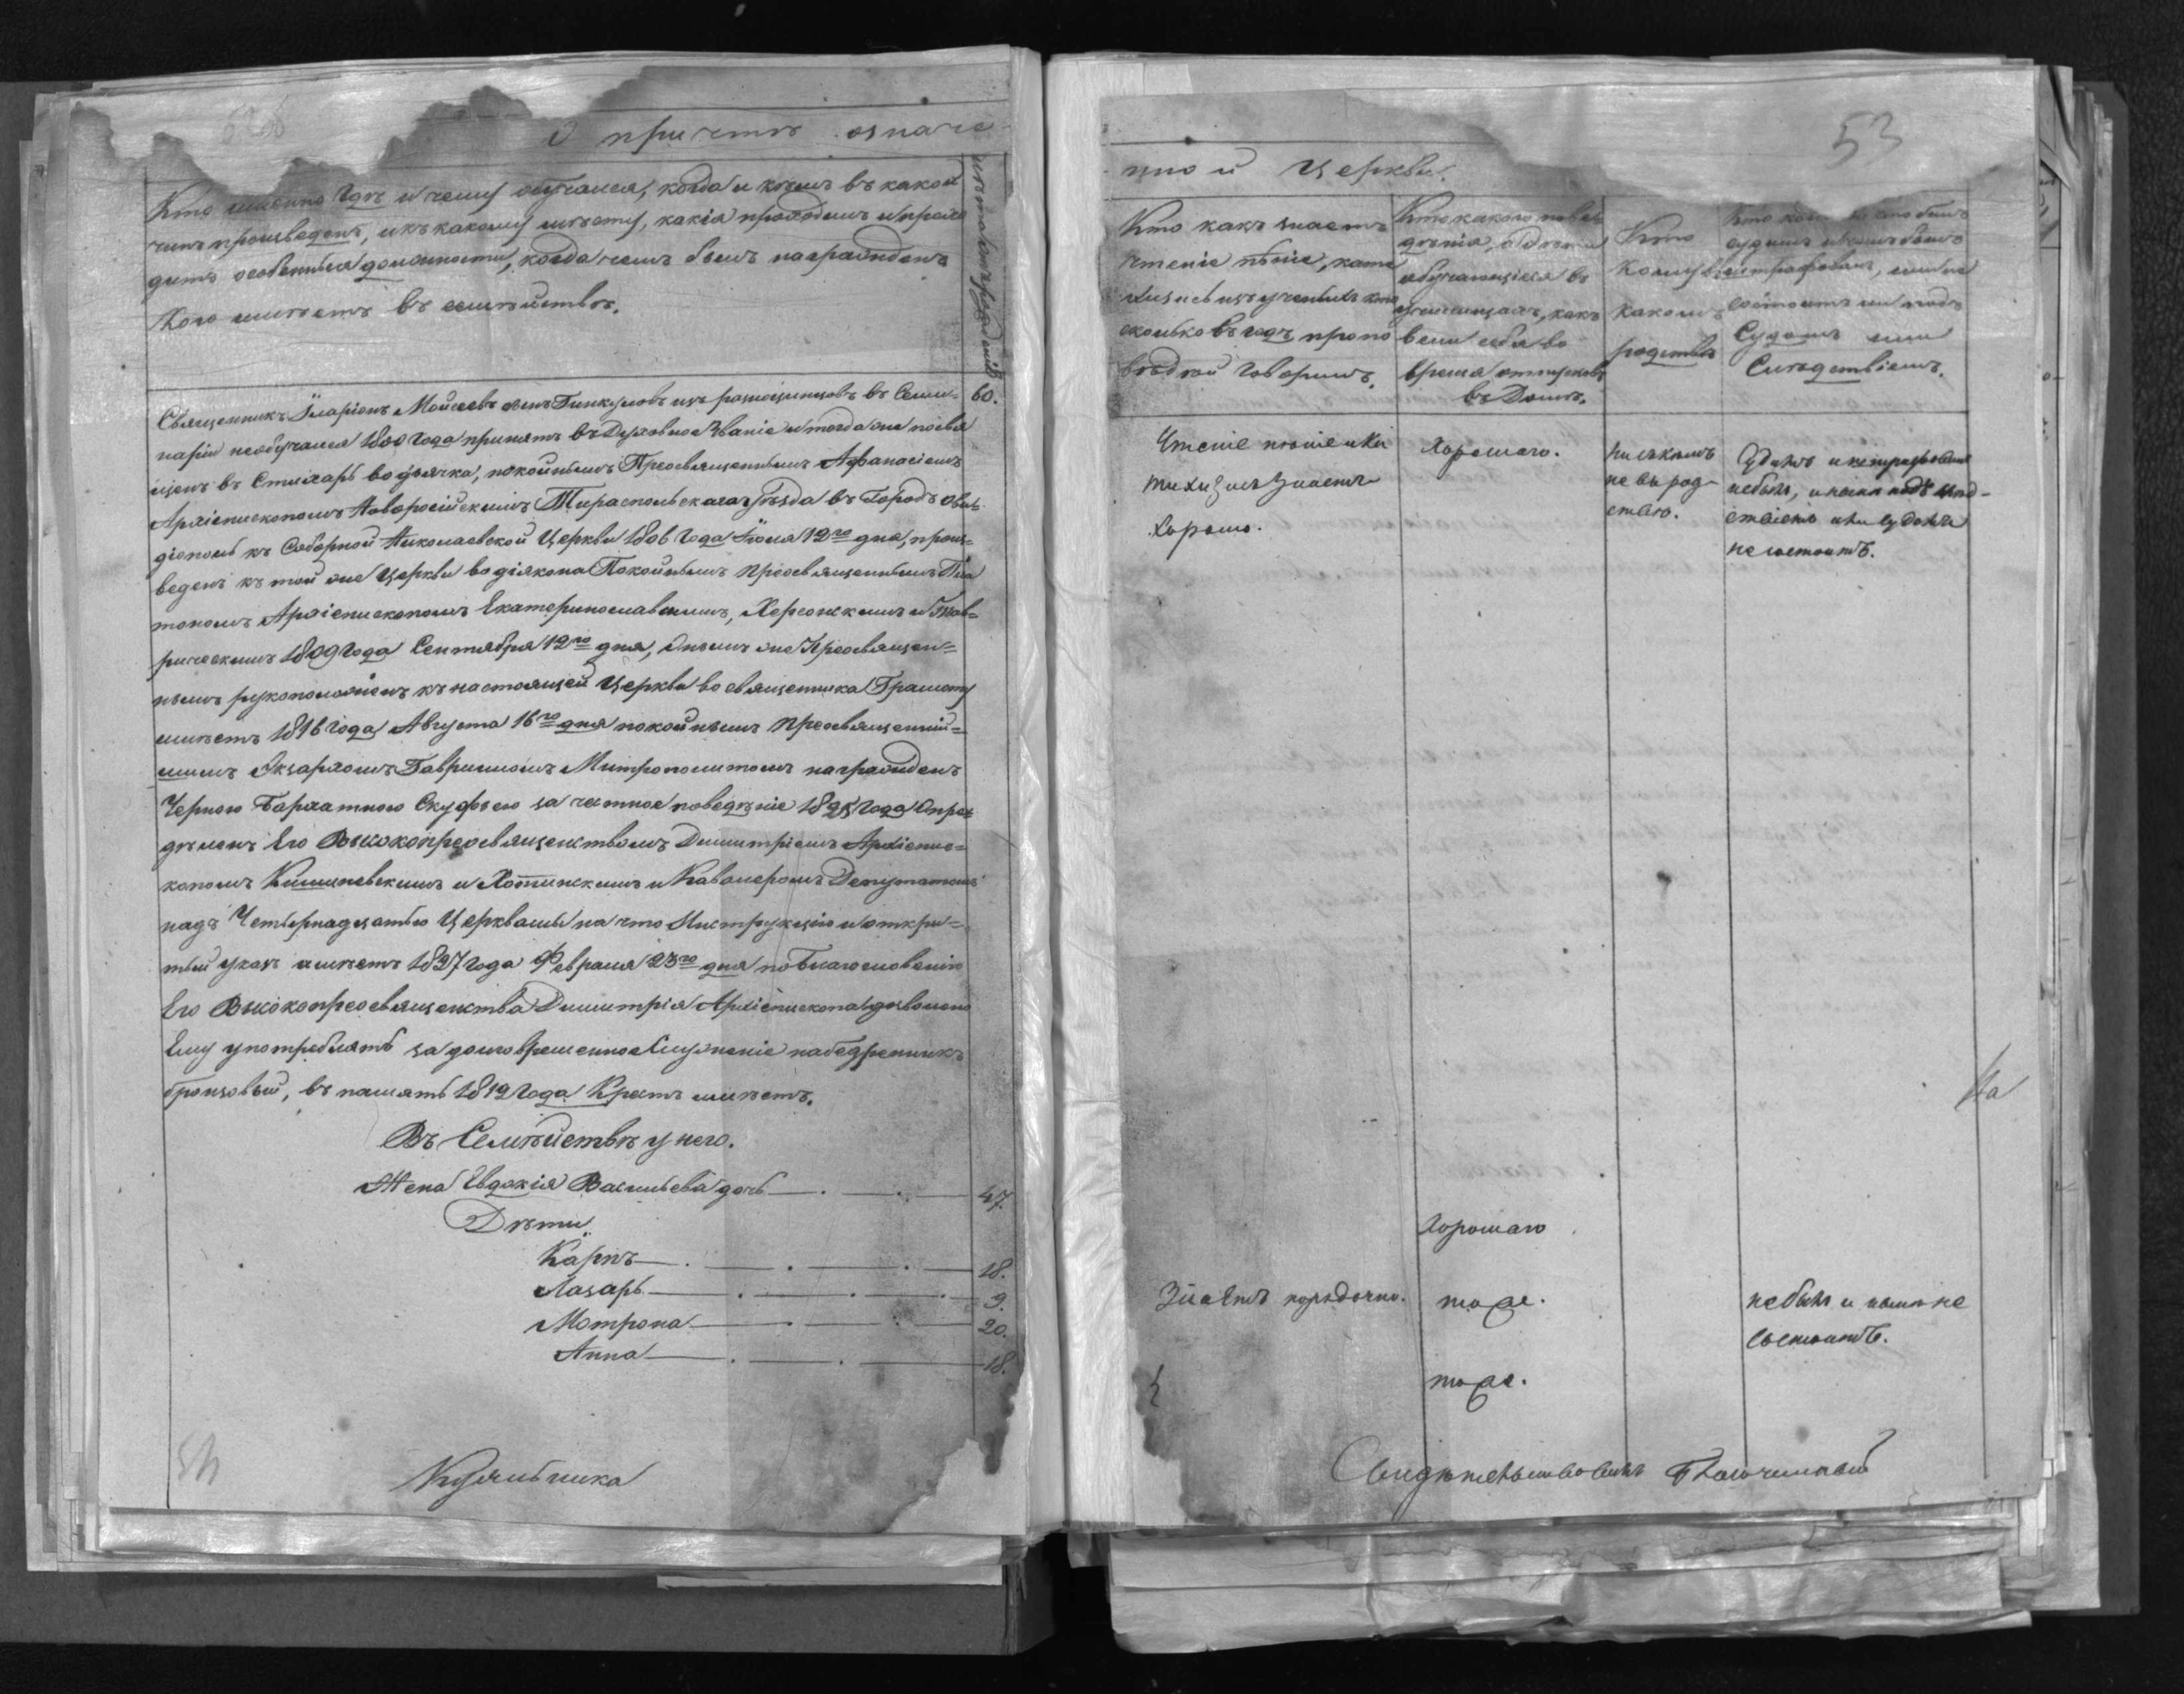 О причтѣ означе-
Кто именно гдѣ и чему обучался, когда и кѣмъ въ какой
чинъ произведенъ, и къ какому мѣсту, какія проходилъ и прохо
дитъ особенныя должности, когда чемъ былъ награжденъ
Кого имѣетъ въ семѣйствѣ.
Священникъ Іларіонъ Моисеевъ сынъ Гинкуловъ изъ разночинцовъ въ Семи= 60.
наріи необучался 1800 года принятъ въ Духовное Званіе и тогда же посвя
щенъ въ Стихарь во дьячка, покойнымъ Преосвященнымъ Афанасіемъ
Архіепископомъ Новоросійскимъ Тираспольскаго уѣзда въ Городъ Овъ
діополь къ Соборной Николаевской Церкви 1806 года Іюля 12го дня, произ=
веденъ къ той же Церкви во діякона Покойнымъ Преосвященнымъ Пла
тономъ Архіепископомъ Екатеринославскимъ, Херсонскимъ и Тав=
рическимъ 1809 года Сентября 12го дня, Онымъ же Преосвящен=
нымъ рукоположенъ къ настоящей Церкви во священника Грамоту
имѣетъ 1816 года Августа 16го дня покойнымъ Преосвященнѣй=
шимъ Экзархомъ Гавріиломъ Митрополитомъ награжденъ
Черною Бархатною Скуфьею за честное поведѣніе 1825 года Опре
дѣленъ Его Высокопреосвященствомъ Димитріемъ Архіепис=
копомъ Кишиневскимъ и Хотинскимъ и Кавалеромъ Депутатомъ
надъ Четырнадцатью Церквами на что Инструкцію и откры=
тый указъ имѣетъ 1827 года Февраля 23го дня по Благословенію
Его Высокопреосвященства Димитрія Архіепископа дозволено
Ему употреблять за долговременное Служеніе набедренникъ
бронзовый, въ память 1812 года Крестъ имѣетъ.
Въ Семѣйствѣ у него.
Жена Евдокія Васильева дочь 47.
Дѣти
Карпъ 18.
Лазарь 9.
Мотрона 20.
Анна 18.
Куяльника
53
нной Церкви.
Кто какъ знаетъ
чтеніе пѣніе, кати
хизисъ изъ ученыхъ кто
сколько въ годъ пропо
вѣдей говоритъ.
Кто какого пове
дѣнія, а дѣти
обучающіися въ
училищахъ, какъ
вели себя во
время отпусковъ
въ Домъ.
Кто
Кому въ
какомъ
родствѣ
судимъ и чемъ былъ
штрафованъ, или не
состоитъ ли подъ
Судомъ или
Слѣдствіемъ.
Чтеніе пѣніе и Ка
тихизисъ Знаетъ
Хорошо.
Хорошаго.
Ни съ кемъ
не въ род-
ствѣ.
Судимъ и нештрафованъ
небылъ, и ныне подъ слѣд-
ствіемъ или судомъ
не состоитъ.
Хорошаго
Знаетъ порядочно.
тоже.
небылъ и ныне не
состоитъ.
тоже.
На
Свидѣтельствовалъ Благочинный